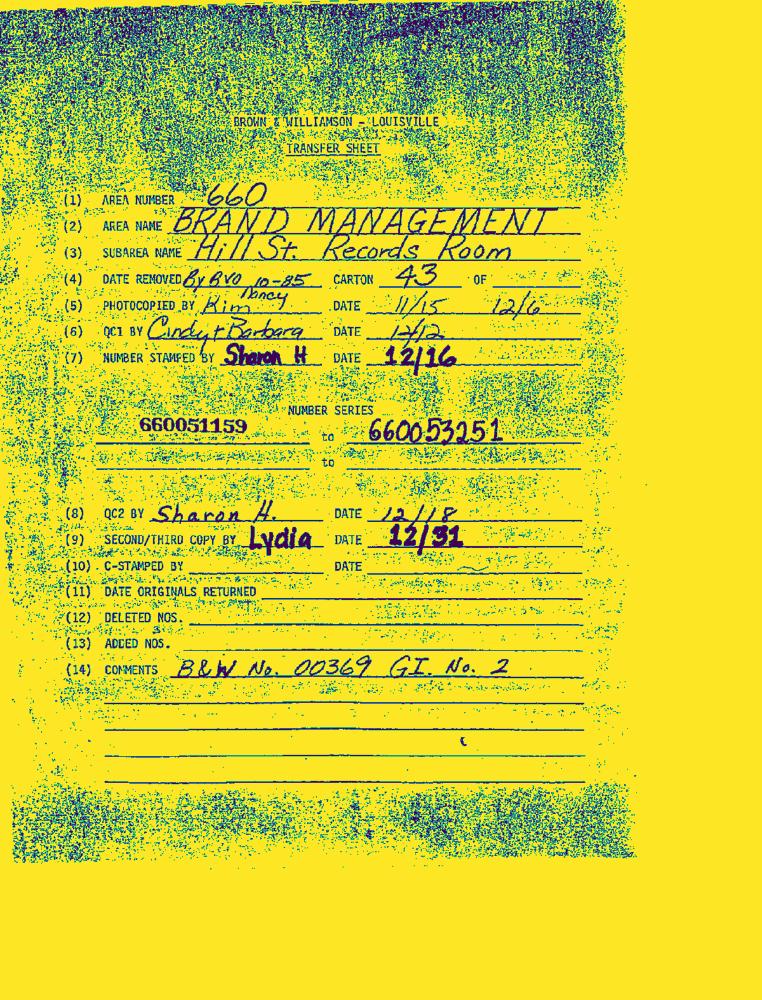 BROWN & WILLIAMSON - LOUISVILLE
TRANSFER SHEET
(1) AREA NUMBER 660
(2) AREA NAME BRAND MANAGEMENT
(3) SUBAREA NAME Hill St. Records Room
(4) DATE REMOVED By BVO 10-85 CARTON 43 OF
(5) PHOTOCOPIED BY Kim Nancy DATE 11/15 12/6
(6) QC1 BY Cindy + Barbara DATE 12/12
(7) NUMBER STAMPED BY Sharon H DATE 12/16
NUMBER SERIES
660051159 to 660053251
to
(8) QC2 BY Sharon H. DATE 12/18
(9) SECOND/THIRD COPY BY Lydia DATE 12/31
(10) C-STAMPED BY DATE
(11) DATE ORIGINALS RETURNED
(12) DELETED NOS.
(13) ADDED NOS.
(14) COMMENTS B&W No. 00369 GI. No. 2